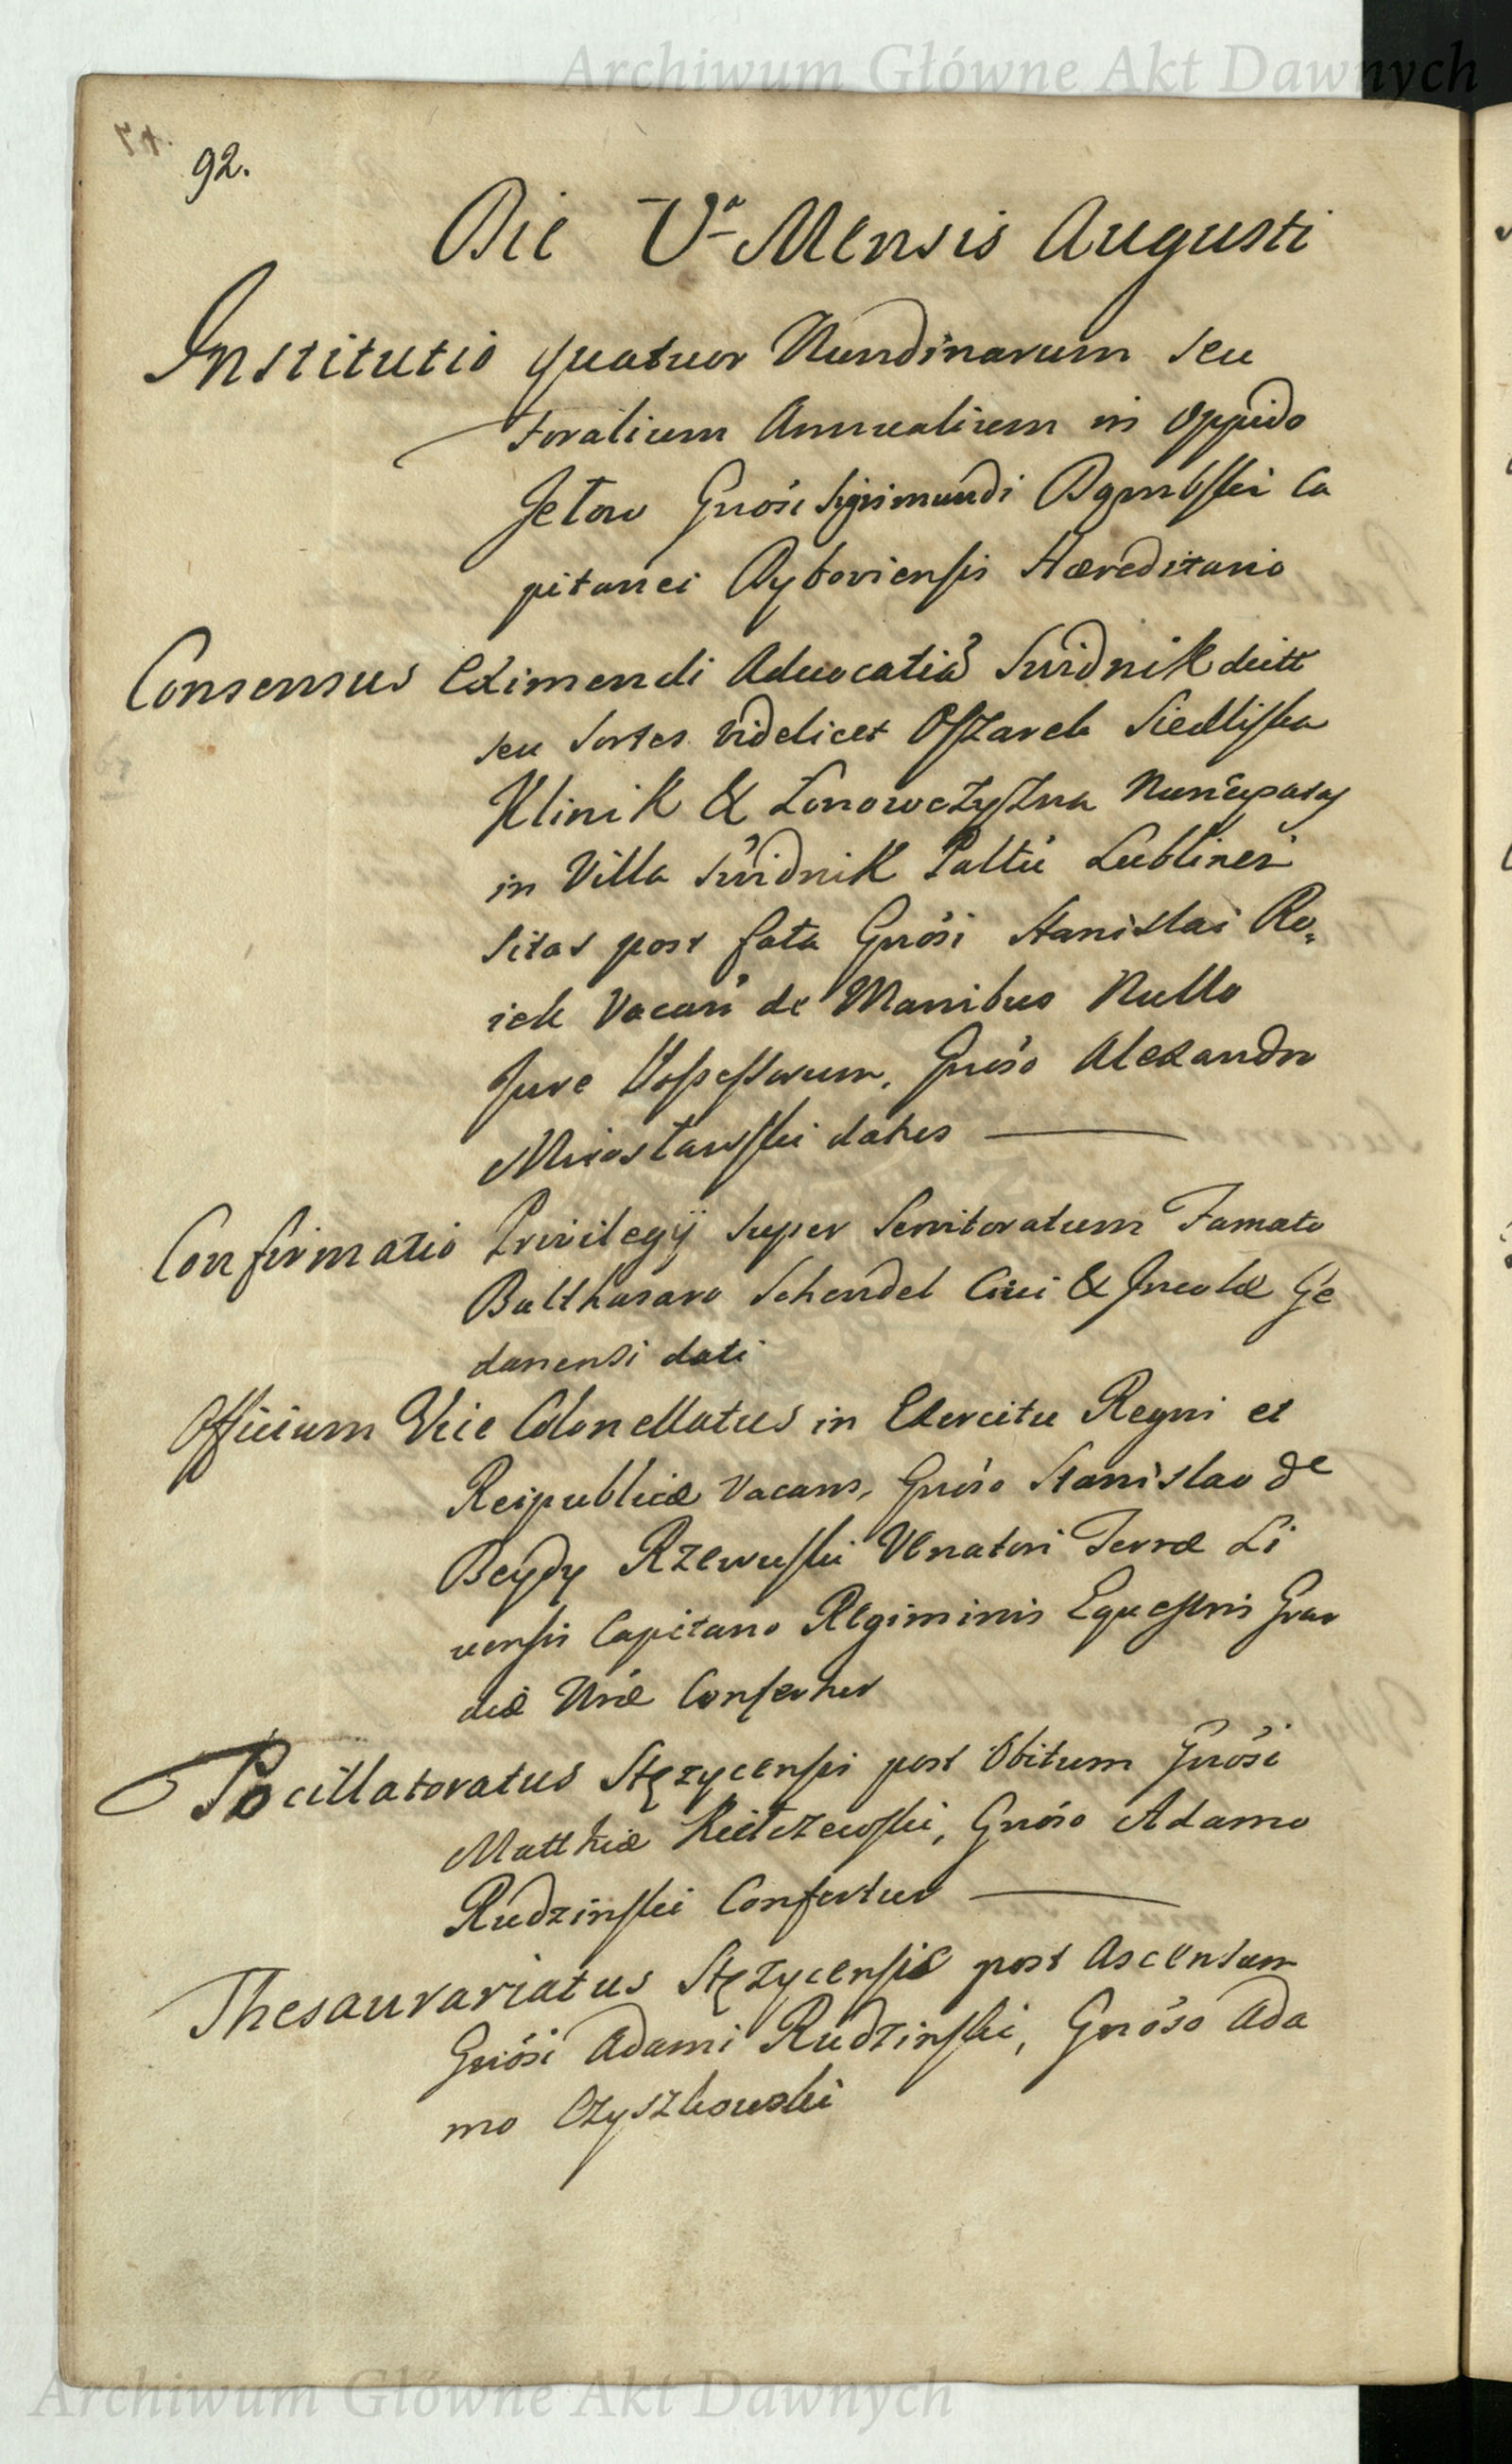 Archiwum Główne Akt Dawnych
92.
Die Va Mensis Augusti
Institutio quatuor Nundinarum seu
Foralium Annualium in Oppido
Jełow Gnosi Sigismundi Dąmbski Ca
pitanei Hæreditario
Consensus Eximendi Advocatiã Swidnik dictt
seu Sortes videlicet Ofzarek Siedliska
Klinik & Lonowczyszna
in Villa Swidnik Paltũ Lublineñ
Sitas post fata Gnosi Stanislai Ro,
iek Vacañ de Manibus Nullo
Jure Possessorum, Gnoso Alexandro
Mirosławski datus
Confirmatio Privilegij super Servitoratum Famato
Balthasaro Schendel Civi & Incolæ Ge
danensi dati
Officium Vice Colonellatus in Exercitu Regni et
Reipublicæ Vacans, Gnoso Stanislao de
Beydy Rzewuski Venatori Terræ Li
vensis Capitano Regiminis Equestris Gvar
diæ Nræ Confertur
Pocillatoratus Stęzycensis post Obitum Gnosi
Matthiæ Kiełczewski, Gnoso Adamo
Rudzinski Confertur
Thesaurariatus Stęzycensis post Ascensum
Gnosi Adami Rudzinski, Gnoso Ada
mo Czyszkowski
Archiwum Główne Akt Dawnych